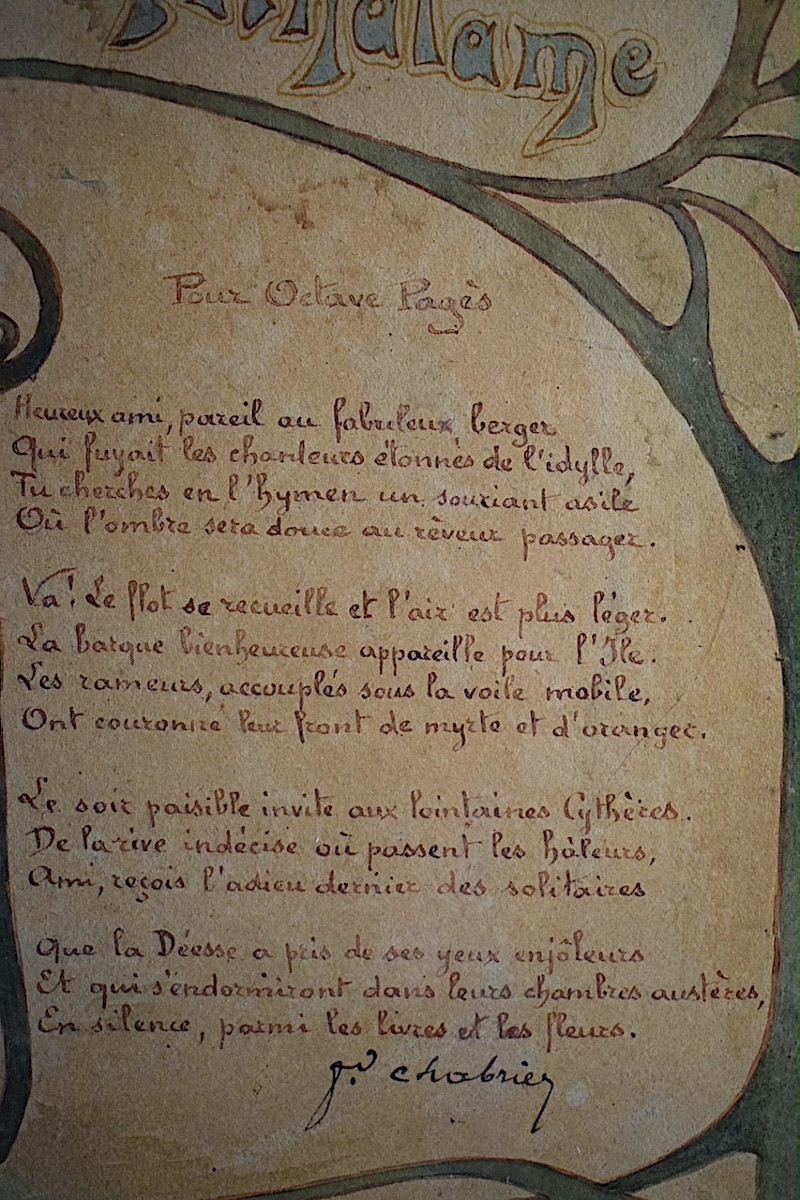 Pour Octave Pagès
Heureux ami, pareil au fabuleux berger
Qui fuyait les chanteurs étonnés de l'idylle,
Tu cherches en l'hymen un souriant asile
Où l'ombre sera douce au rêveur passager.
Va! Le flot se recueille et l'air est plus léger.
La barque bienheureuse appareille pour l'Ile.
Les rameurs, accouplés sous la voile mobile,
Ont couronné leur front de myrte et d'oranger.
Le soir paisible invite aux lointaines Cythères.
De la rive indécise où passent les hâleurs,
Ami, reçois l'adieu dernier des solitaires
Que la Déesse a pris de ses yeux enjôleurs
Et qui s'endormiront dans leurs chambres austères,
En silence, parmi les livres et les fleurs.
chabrier